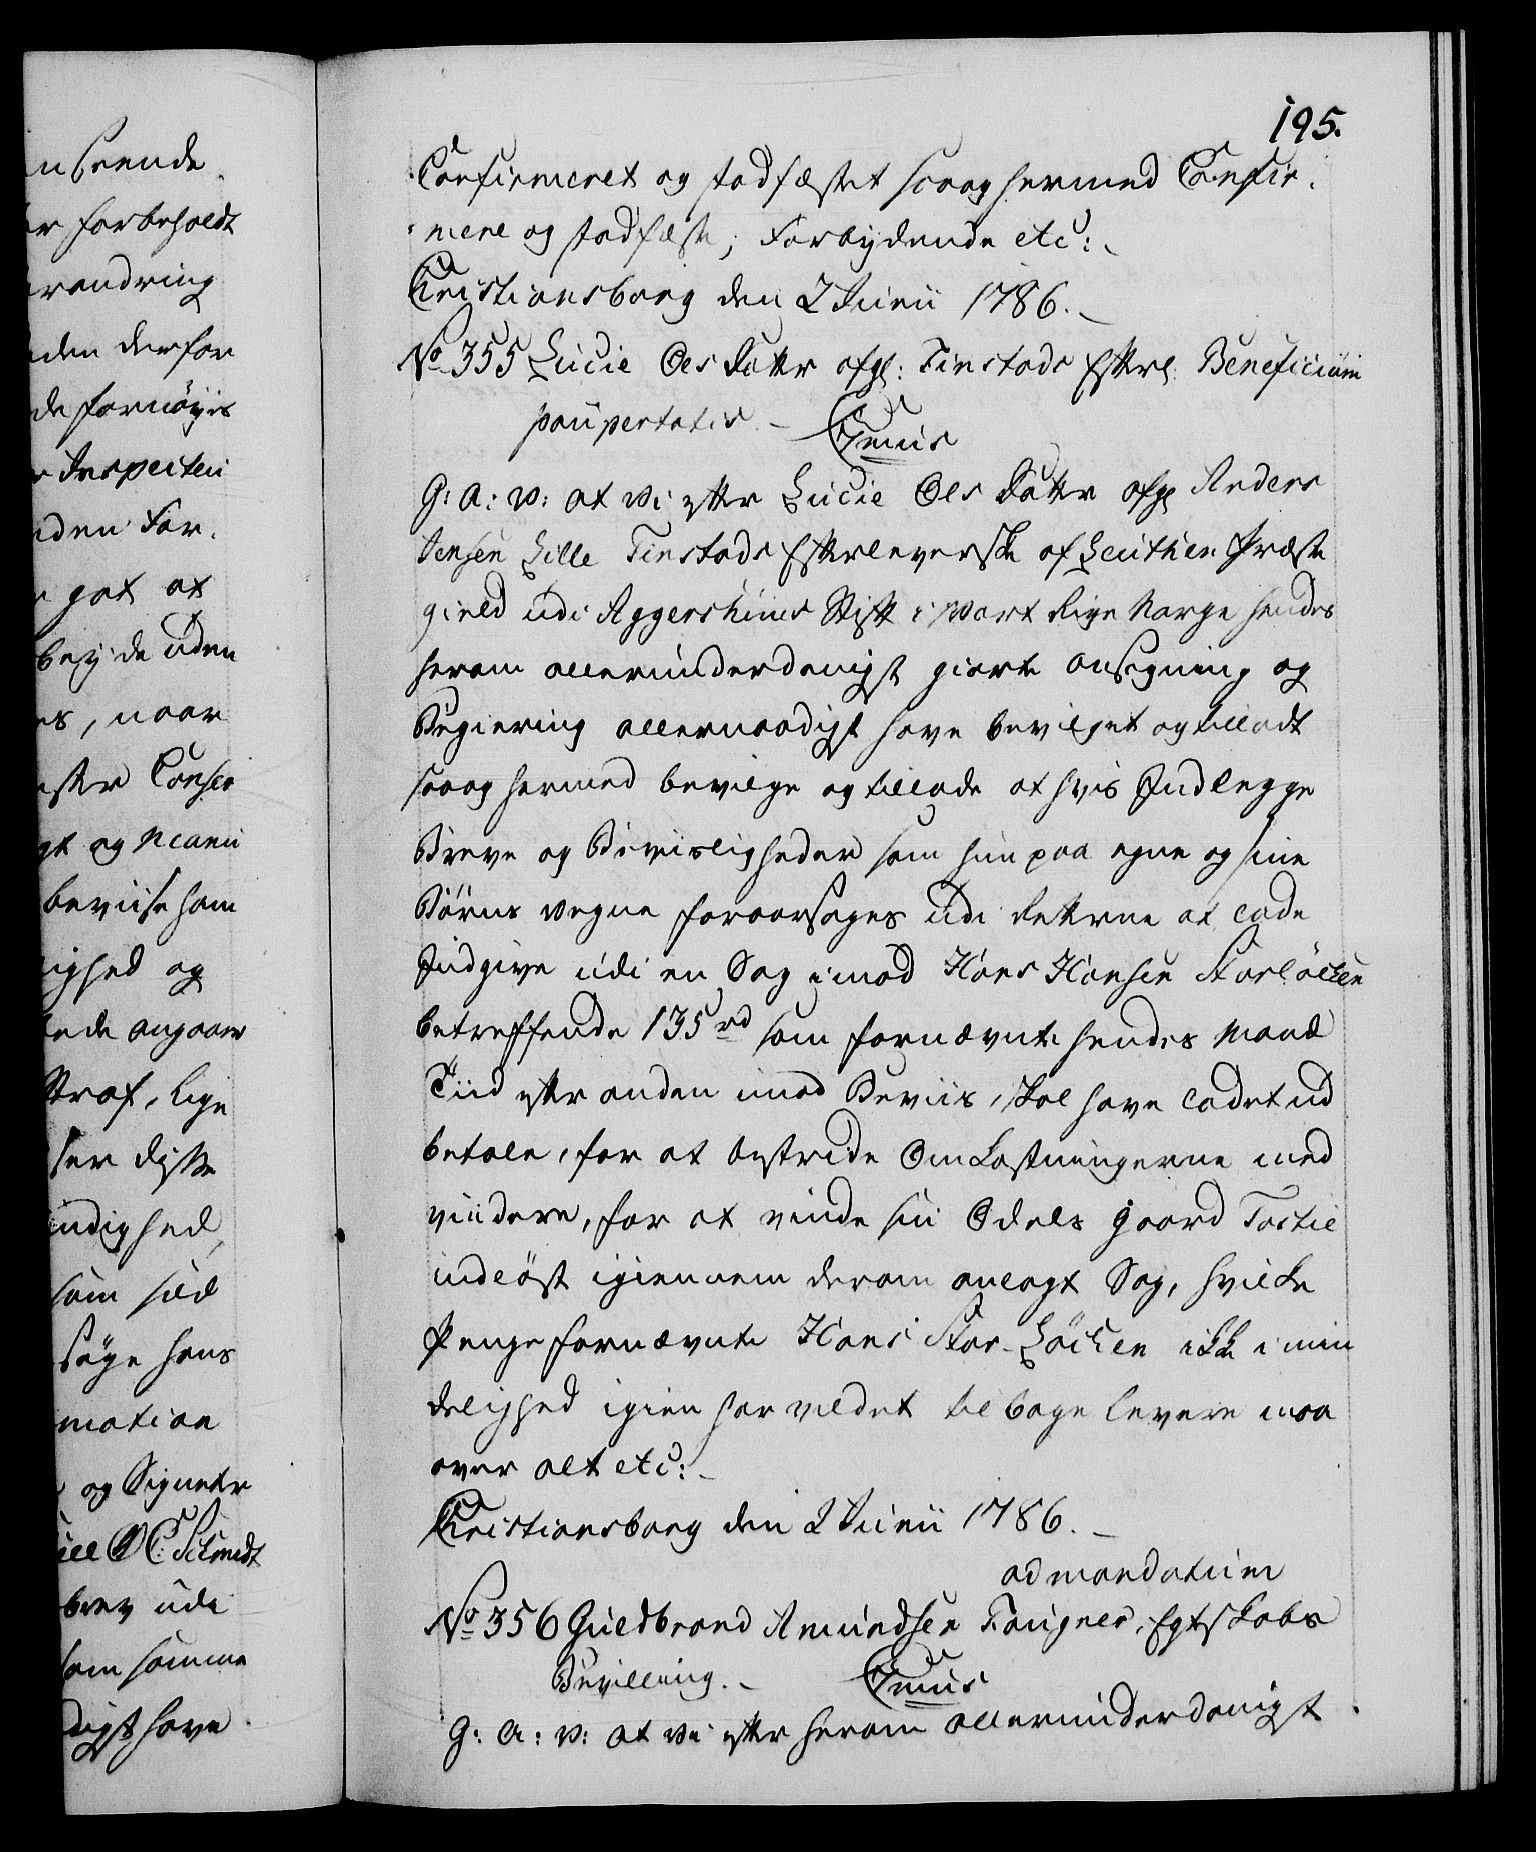 195.
Confirmeret og stadfæstet saa og hermed Confir-
mere og stadfæste; Forbydende etc:
Christiansborg den 2 Junii 1786.
No 355 Lucie Olsdatter afg: Finstads Efterl. Beneficium
paupertatis. Cujus
G: A: V: at Vi efter Lucie Olsdatter afg. Anders
Jensen Lille Finstads Efterleverske af Leuthen Præste
gield udi Aggershuus Stift i Vort Rige Norge hendes
herom allerunderdanigst giorte Ansøgning og
Begiering allernaadigst have bevilget og tilladt
saa og hermed bevilge og tillade at hvis Indlegge
Breve og Beviisligheder som hun paa egne og sine
Børns vegne foraarsages udi Retterne at lade
Indgive udi en Sag imod Hans Hansen Storløcken
betreffende 135 rd som fornævnte hendes Mand
Tiid efter anden imod Beviis, skal have ladet ud
betale, for at bestride Omkostningerne med
videre, for at vinde sin Odels Gaard
indløst igiennem derom anlagt Sag, hvilke
Penge fornævnte Hans Stor-Løcken ikke i min
delighed igien har vildet tilbage levere maa
over alt etc:
Christiansborg den 2 Junii 1786.
ad mandatum
No 356 Guldbrand Amundsen Faugner, Egteskabs
Bevilling. Cujus
G: A: V: at Vi efter herom allerunderdanigst
nseende
r forbeholdt
randring
den derfor
de fornøyes
Inspecteu
den For-
got at
beyde uden
es, naar
ester Conser
gt og Manu
beviise ham
ighed og
ede angaaer
Straf, lige
ser diste
ndighed,
som
søge hans
mation
og Signete
C: Schmidt
brev udi
som samme
digst have